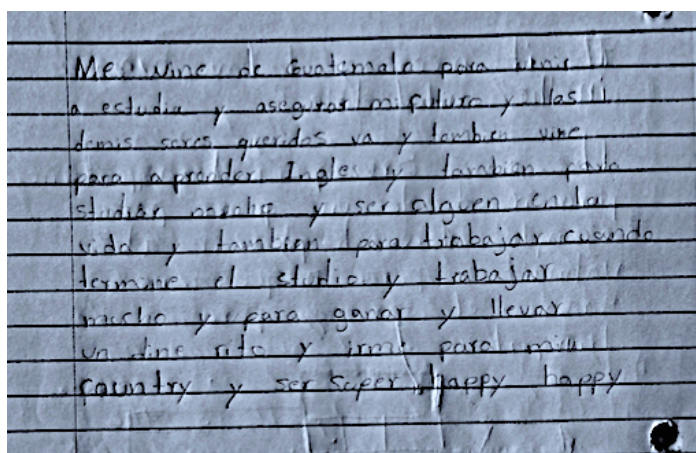 Me vine de Guatemala para venir
a estudia y asegurar mi futuro y
demis seres queridos va y tambien vine
para aprender Ingles y tambien para
studiar mucho y ser alguen en la
vida y tambien para trabajar cuando
termine el studio y trabajar
mucho y para ganar y llevar
un dine rito y irme para miu
country y ser super happy happy